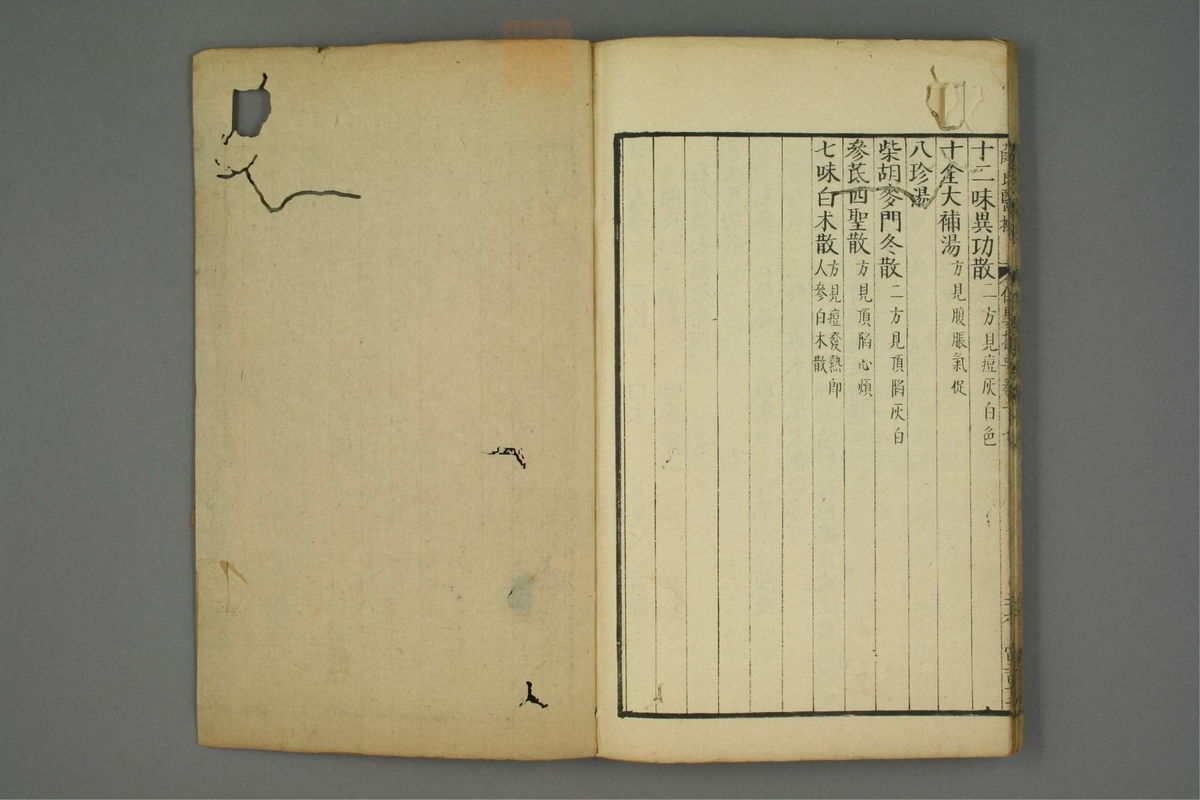 十二味異功散二方見痘灰白色
十全大補湯方見腹脹氣促
八珍湯
柴胡麥門冬散二方見頂陷灰白
參芪四聖散方見頂陷心煩
七味白朮散方見痘發熱即
人參白朮散